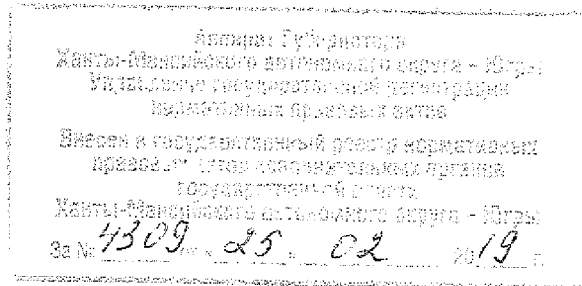 Аппарат Губернатора
Ханты-Мансийского автономного округа – Югры
Управление государственной регистрации
нормативных правовых актов
Внесен в государственный реестр нормативных
правовых актов исполнительных органов
государственной власти
Ханты-Мансийского автономного округа – Югры
За № 4309 от « 25 » 02 2019 г.